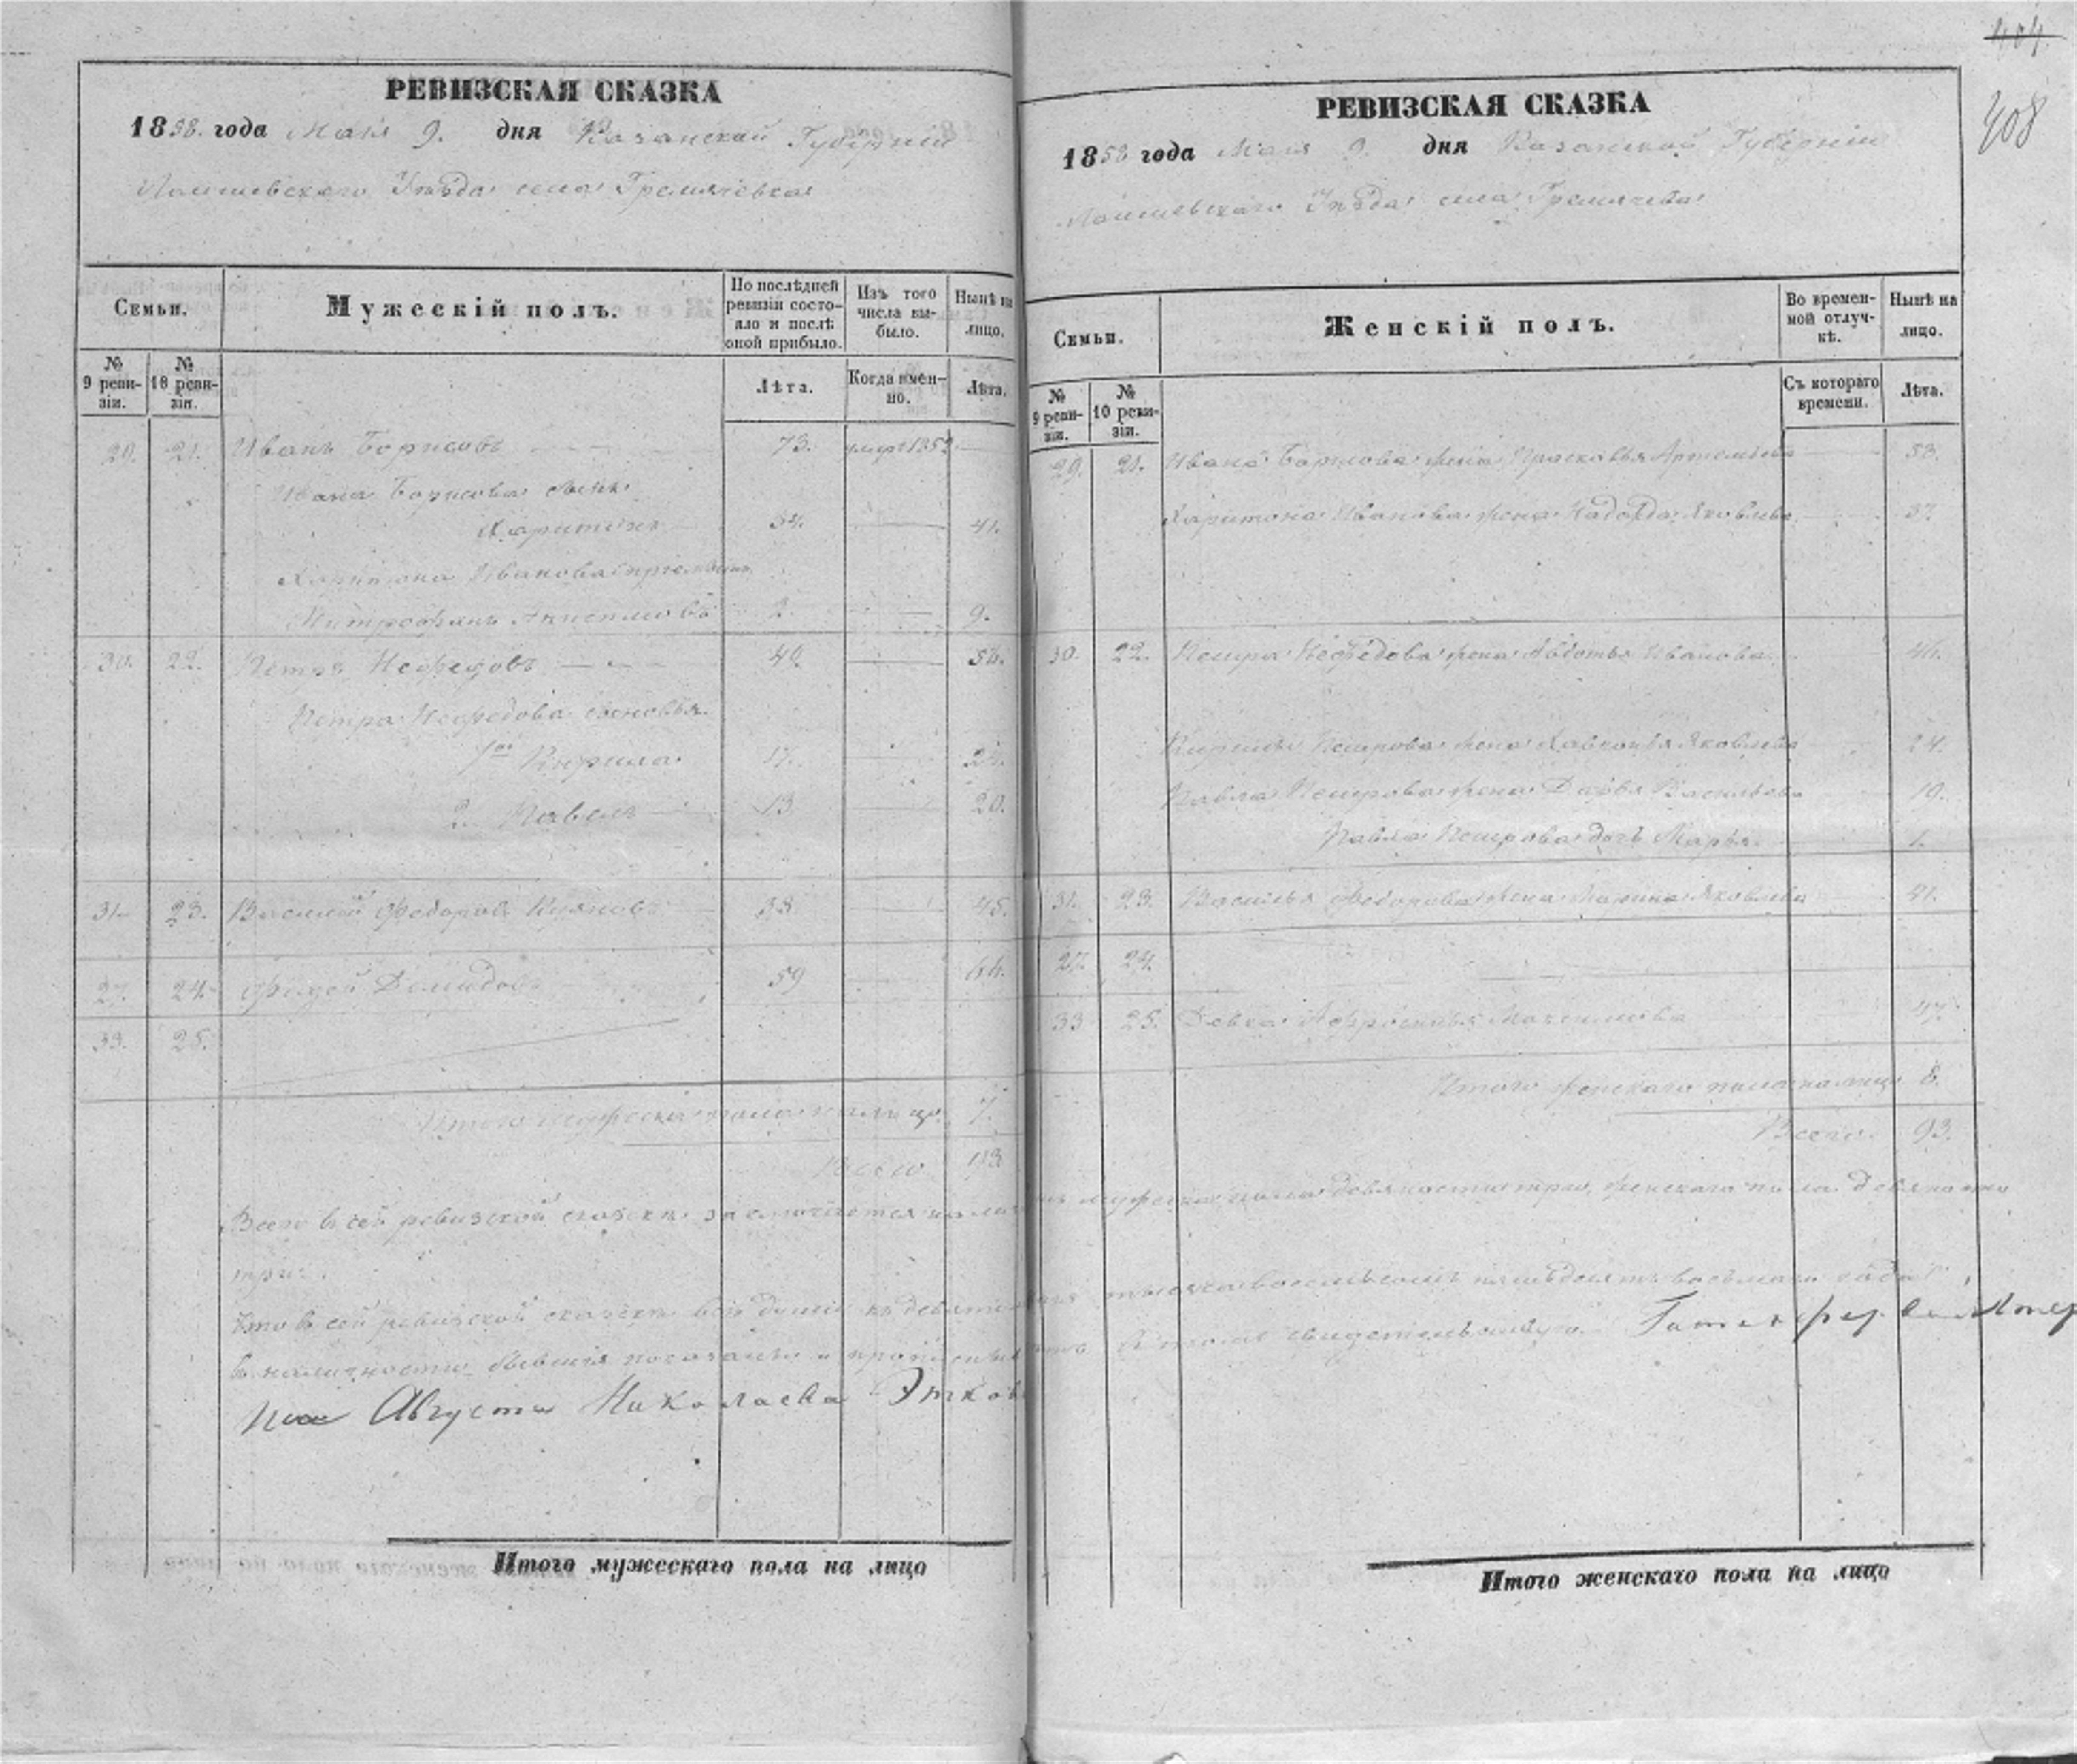 РЕВИЗСКАЯ СКАЗКА
1858. года Мая 9. дня Казанской Губерніи
Лаишевскаго Уѣзда села Гремячевка
Семьи.
Мужескій полъ.
По послѣдней ревизіи состояло и послѣ оной прибыло.
Изъ того числа выбыло.
Нынѣ на лицо.
№ 9 ревизіи.
№ 10 ревизіи.
Лѣта.
Когда именно.
Лѣта.
21. Иванъ Борисовъ 73. умеръ 185
Ивана Борисова сынъ
Харитонъ 34. 41.
Харитона Иванова
Митрофанъ 2. 9.
30. 22. Петръ Нефедовъ 49. 56.
Петра Нефедова сыновья
1ой Кирила 17. 24.
2. Павелъ 13. 20.
31. 23. Василій Федоровъ 38. 45.
24. Демидовъ 59
33. 25.
Итого мужеска пола на лицо. 7.
Всего 93
Всего въ сей ревизской сказкѣ заключается на лицо мужеска пола девяносто три, женскаго пола девяносто
три.
Что въ сей ревизской сказкѣ всѣ души къ девятому мая тысяча восемьсотъ пятьдесятъ восьмаго года
въ наличности бывшія показаны и въ томъ свидетельствую
Августа Николаева
Итого мужескаго пола на лицо
404
408
РЕВИЗСКАЯ СКАЗКА
1858 года Мая 9. дня Казанской Губерніи
Лаишевскаго Уѣзда села Гремячева
Семьи.
Женскій полъ.
Во временной отлучкѣ.
Нынѣ на лицо.
№ 9 ревизіи.
№ 10 ревизіи.
Съ котораго времени.
Лѣта.
29. 21. Ивана Борисова жена Прасковья Артемьева 53.
Харитона Иванова жена Надежда Яковлева 37.
30. 22. Петра Нефедова жена Авдотья Иванова 46.
Кирилы Петрова жена Хавронья Яковлева 24.
Павла Петрова жена Дарья Васильева 19.
Павла Петрова дочь Марья 1.
31. 23. Василья Федорова жена Марина Яковлева 41.
27. 24.
33 25. Девка Афросинья Максимова 47.
Итого женскаго пола на лицо 8.
Всего 93.
Итого женскаго пола на лицо